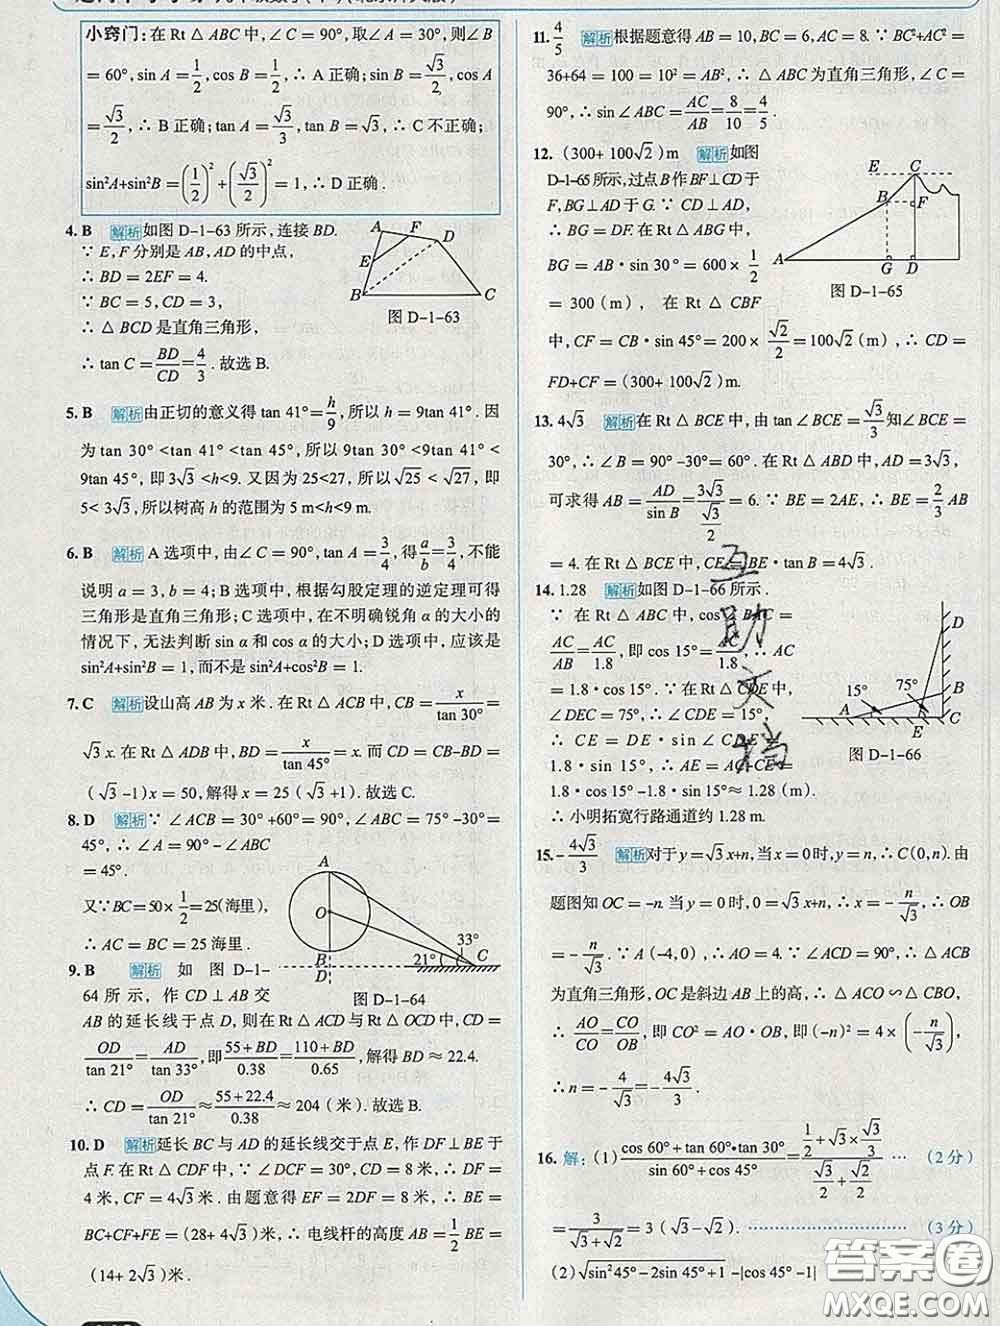 小窍门:在 Rt △ ABC 中,∠ C = 90°,取∠ A = 30°,则∠ B
= 60°, sin A = 1/2, cos B = 1/2, ∴ A 正确; sin B = √3/2, cos A
= √3/2, ∴ B 正确; tan A = √3/3, tan B = √3, ∴ C 不正确;
sin²A+sin²B = (1/2)² + (√3/2)² = 1, ∴ D 正确.
4. B 解析 如图 D-1-63 所示,连接 BD.
∵ E, F 分别是 AB, AD 的中点,
∴ BD = 2EF = 4.
∵ BC = 5, CD = 3,
∴ △ BCD 是直角三角形,
∴ tan C = BD/CD = 4/3. 故选 B.
A F D E B C
图 D-1-63
5. B 解析 由正切的意义得 tan 41° = h/9, 所以 h = 9tan 41°. 因
为 tan 30° < tan 41° < tan 45°, 所以 9tan 30° < 9tan 41° <
9tan 45°, 即 3√3 < h < 9. 又因为 25<27, 所以 √25 < √27, 即
5 < 3√3, 所以树高 h 的范围为 5 m < h < 9 m.
6. B 解析 A 选项中,由∠ C = 90°, tan A = 3/4, 得 a/b = 3/4, 不能
说明 a = 3, b = 4; B 选项中,根据勾股定理的逆定理可得
三角形是直角三角形; C 选项中,在不明确锐角 α 的大小的
情况下,无法判断 sin α 和 cos α 的大小; D 选项中,应该是
sin²A+sin²B = 1, 而不是 sin²A+sin²B > 1.
7. C 解析 设山高 AB 为 x 米. 在 Rt △ ACB 中, CB = x/tan 30° =
√3 x. 在 Rt △ ADB 中, BD = x/tan 45° = x. 而 CD = CB-BD =
(√3 -1)x = 50, 解得 x = 25 (√3 +1). 故选 C.
8. D 解析 ∵ ∠ ACB = 30° +60° = 90°, ∠ ABC = 75° -30° =
45°, ∴ ∠ A = 90° -∠ ABC
= 45°.
又∵ BC = 50× 1/2 = 25(海里),
∴ AC = BC = 25 海里.
A O B D 21° 33° C
图 D-1-64
9. B 解析 如 图 D-1-
64 所 示, 作 CD ⊥ AB 交
AB 的延长线于点 D, 则在 Rt △ ACD 与 Rt △ OCD 中, CD
= OD/tan 21° = AD/tan 33°, 即 (55+BD)/0.38 = (110+BD)/0.65, 解得 BD ≈ 22.4.
∴ CD = OD/tan 21° ≈ (55+22.4)/0.38 ≈ 204 (米). 故选 B.
10. D 解析 延长 BC 与 AD 的延长线交于点 E, 作 DF ⊥ BE 于
点 F. 在 Rt △ CDF 中, ∵ ∠ DCF = 30°, CD = 8 米, ∴ DF =
4 米, CF = 4√3 米. 由题意得 EF = 2DF = 8 米, ∴ BE =
BC+CF+FE = (28+ 4√3) 米, ∴ 电线杆的高度 AB = 1/2 BE =
(14+ 2√3) 米.
11. 4/5 解析 根据题意得 AB = 10, BC = 6, AC = 8. ∵ BC²+AC² =
36+64 = 100 = 10² = AB², ∴ △ ABC 为直角三角形, ∠ C =
90°, ∴ sin ∠ ABC = AC/AB = 8/10 = 4/5.
12. (300+ 100√2) m 解析 如图
D-1-65 所示, 过点 B 作 BF⊥ CD 于
F, BG ⊥ AD 于 G. ∵ CD ⊥ AD,
∴ BG = DF. 在 Rt △ ABG 中,
BG = AB · sin 30° = 600 × 1/2
= 300 (m), 在 Rt △ CBF
E C B F A G D
图 D-1-65
中, CF = CB · sin 45° = 200× √2/2 = 100√2 (m), ∴ CD =
FD+CF = (300+ 100√2) m.
13. 4√3 解析 在 Rt △ BCE 中, 由 tan ∠ BCE = √3/3 知∠ BCE =
30°, ∴ ∠ B = 90° -30° = 60°. 在 Rt △ ABD 中, AD = 3√3,
可求得 AB = AD/sin B = 3√3/(√3/2) = 6. ∵ BE = 2AE, ∴ BE = 2/3 AB
= 4. 在 Rt △ BCE 中, CE = BE · tan B = 4√3.
14. 1.28 解析 如图 D-1-66 所示.
∵ 在 Rt △ ABC 中, cos ∠ BAC =
AC/AB = AC/1.8, 即 cos 15° = AC/1.8, ∴ AC
= 1.8 · cos 15°. ∵ 在 Rt △ CDE 中,
∠ DEC = 75°, ∴ ∠ CDE = 15°,
∴ CE = DE · sin ∠ CDE =
1.8 · sin 15°, ∴ AE = AC-CE =
D 15° 75° B A E C
图 D-1-66
1.8 · cos 15° -1.8 · sin 15° ≈ 1.28 (m).
∴ 小明拓宽行路通道约 1.28 m.
15. -4√3/3 解析 对于 y = √3 x+n, 当 x = 0 时, y = n, ∴ C (0, n). 由
题图知 OC = -n. 当 y = 0 时, 0 = √3 x+n, ∴ x = -n/√3, ∴ OB
= -n/√3. ∵ A (-4, 0), ∴ AO = 4. ∵ ∠ ACD = 90°, ∴ △ ACB
为直角三角形, OC 是斜边 AB 上的高, ∴ △ ACO ∽ △ CBO,
∴ AO/CO = CO/OB, 即 CO² = AO · OB, 即 (-n)² = 4 × (-n/√3),
∴ n = -4/√3 = -4√3/3.
16. 解: (1) (cos 60° + tan 60° · tan 30°)/(sin 60° + cos 45°) = (1/2 + √3 × √3/3)/(√3/2 + √2/2) … (2 分)
= 3/(√3+√2) = 3 (√3-√2). ……………… (3 分)
(2) √(sin²45° - 2sin 45° +1) - |cos 45° -1|
互助文档
答案圈
MXQE.COM